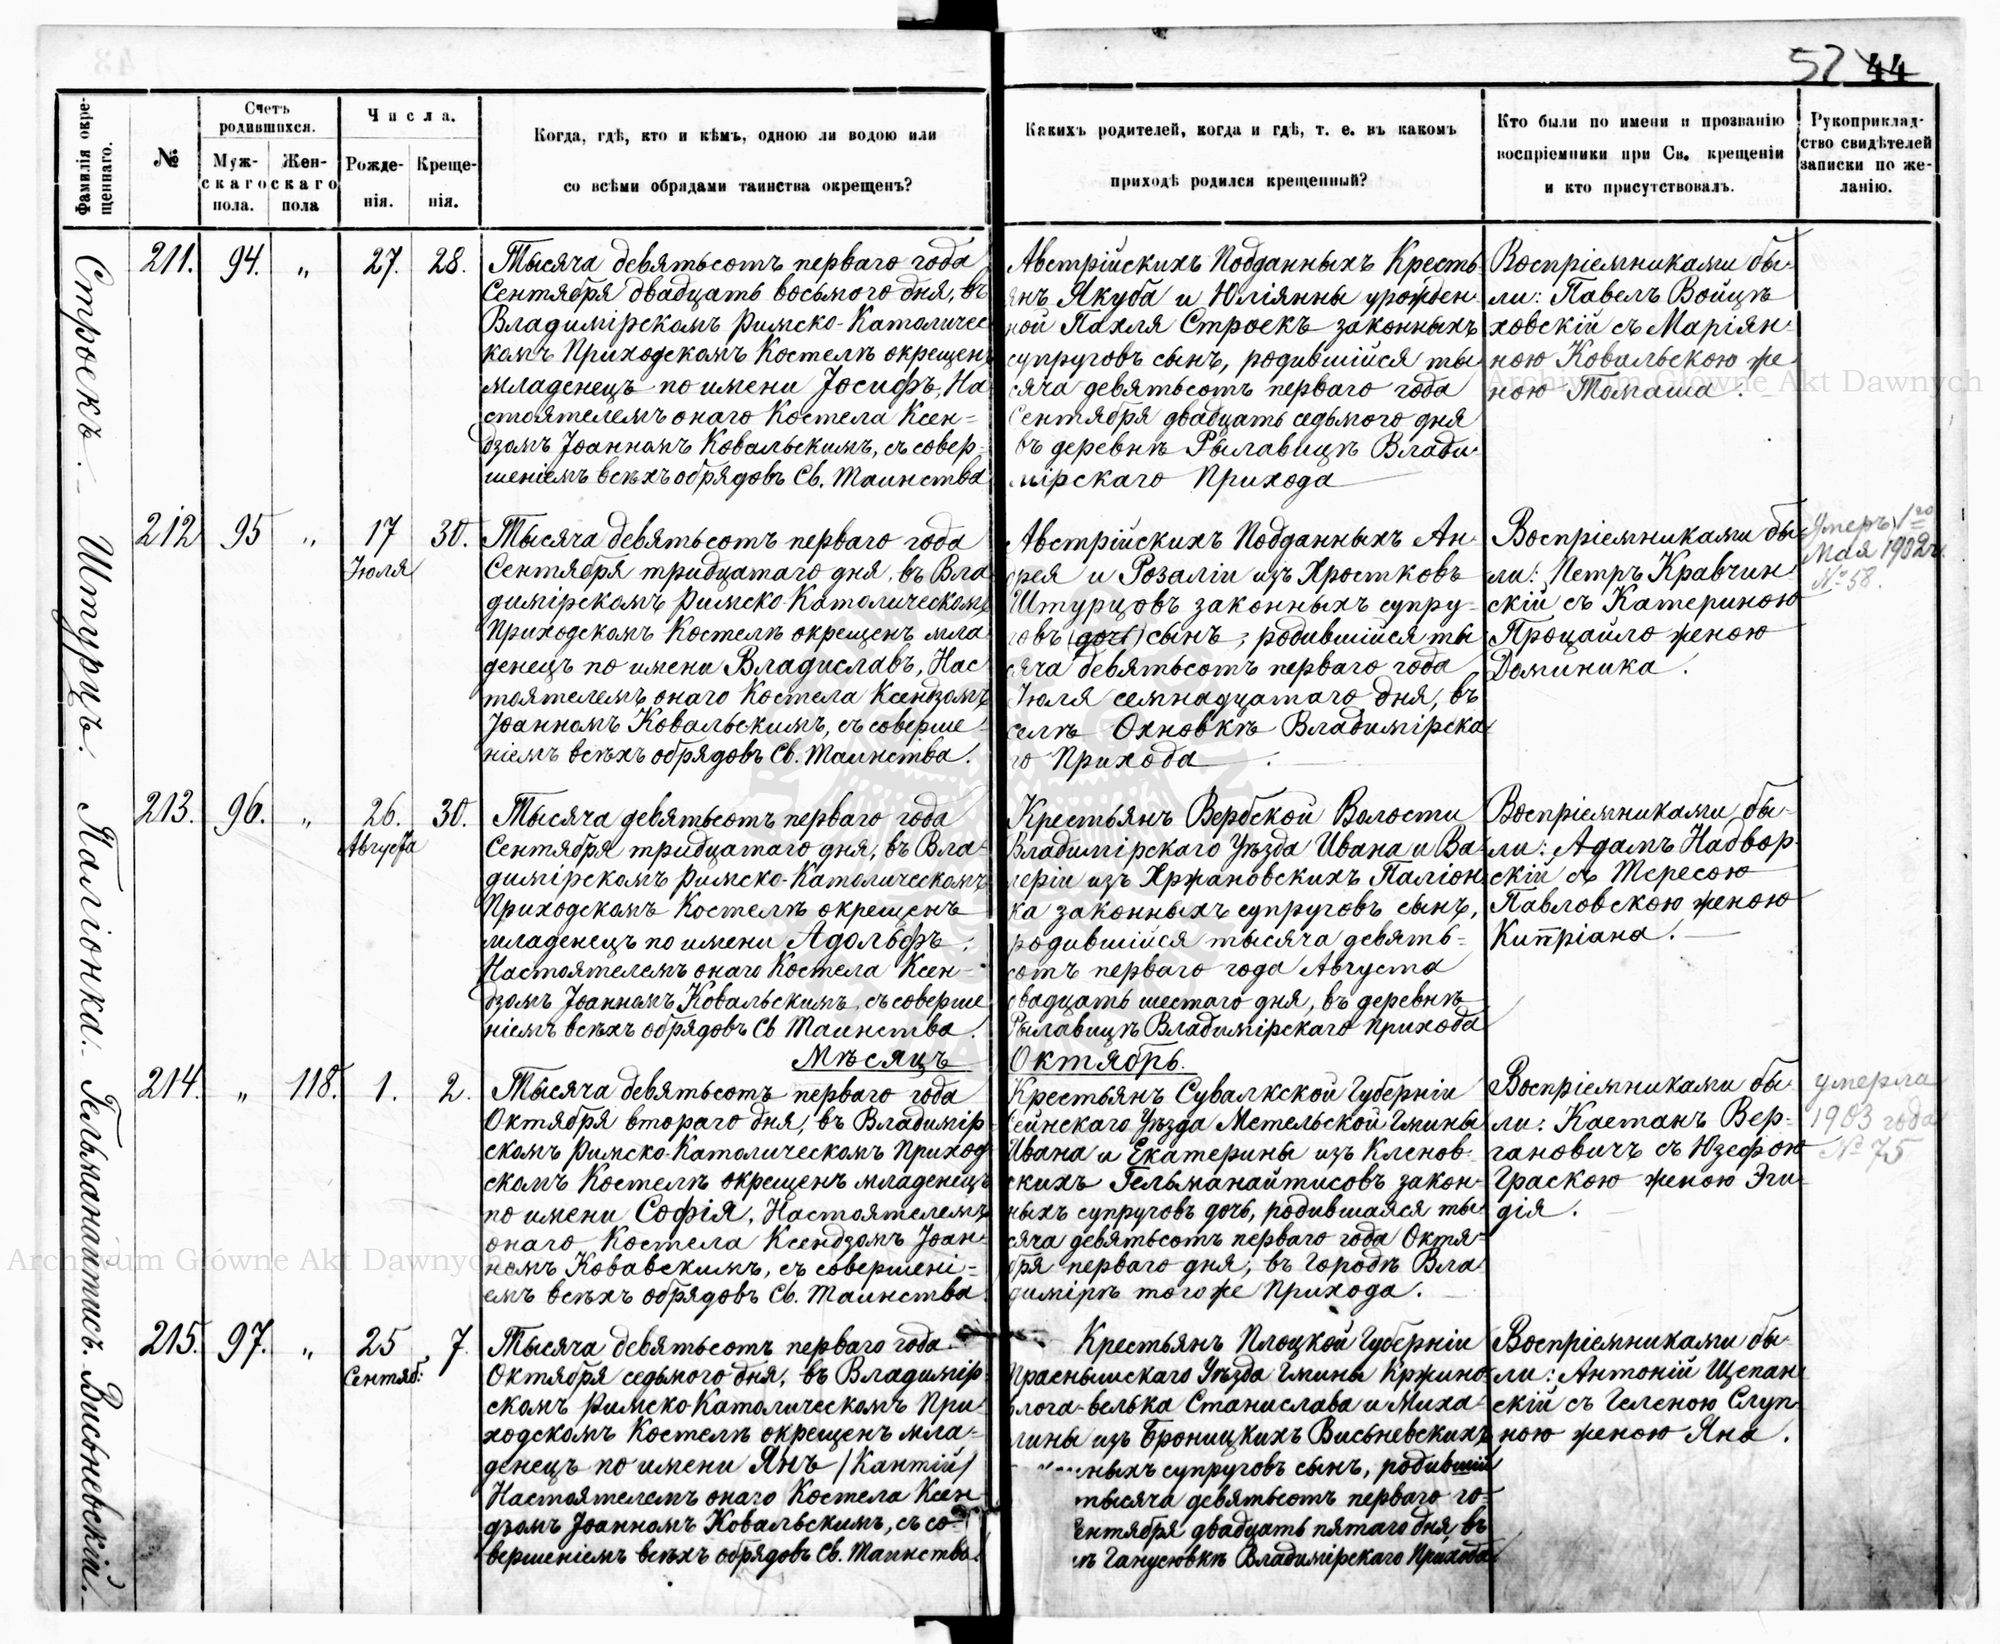 52 44
Фамилія окрещеннаго.
№
Счетъ родившихся.
Мужскаго пола.
Женскаго пола
Числа.
Рожденія.
Крещенія.
Когда, гдѣ, кто и кѣмъ, одною ли водою или
со всѣми обрядами таинства окрещенъ?
Какихъ родителей, когда и гдѣ, т. е. въ какомъ
приходѣ родился крещенный?
Кто были по имени и прозванію
воспріемники при Св. крещеніи
и кто присутствовалъ.
Рукоприклад-
ство свидѣтелей
записки по же-
ланію.
Строекъ.
211. 94. „ 27. 28.
Тысяча девятьсотъ перваго года
Сентября двадцать восьмого дня, въ
Владимірскомъ Римско-Католичес
комъ Приходскомъ Костелѣ окрещенъ
младенецъ по имени Іосифъ, На
стоятелемъ онаго Костела Ксен-
дзомъ Іоанномъ Ковальскимъ, съ совер-
шеніемъ всѣхъ обрядовъ Св. Таинства
Австрійскихъ Подданныхъ Кресть
янъ Якуба и Юліянны урожден-
ной Пахля Строекъ законныхъ
супруговъ сынъ, родившійся ты
сяча девятьсотъ перваго года
Сентября двадцать седьмого дня
въ деревнѣ Рылавицѣ Влади-
мірскаго Прихода
Воспріемниками бы-
ли: Павелъ Войцѣ
ховскій съ Маріян-
ною Ковальскою же
ною Томаша.
Штурцъ.
212 95 „ 17 30.
Іюля
Тысяча девятьсотъ перваго года
Сентября тридцатаго дня, въ Вла
димірскомъ Римско-Католическомъ
Приходскомъ Костелѣ окрещенъ мла
денецъ по имени Владиславъ, Нас
тоятелемъ онаго Костела Ксендзомъ
Іоанномъ Ковальскимъ, съ соверше-
ніемъ всѣхъ обрядовъ Св. Таинства.
Австрійскихъ Подданныхъ Ан
дрея и Розаліи изъ Хростковъ
Штурцовъ законныхъ супру-
говъ (дочь) сынъ, родившійся ты
сяча девятьсотъ перваго года
Іюля семнадцатаго дня, въ
селѣ Охновкѣ Владимірска
го Прихода
Воспріемниками бы
ли: Петръ Кравчин
скій съ Катериною
Процайло женою
Доминика.
Умеръ 1го
Мая 1902г.
№ 58.
Паліонка.
213. 96. „ 26. 30.
Августа
Тысяча девятьсотъ перваго года
Сентября тридцатаго дня, въ Вла-
димірскомъ Римско-Католическомъ
Приходскомъ Костелѣ окрещенъ
младенецъ по имени Адольфъ,
Настоятелемъ онаго Костела Ксен-
дзомъ Іоанномъ Ковальскимъ, съ соверше
ніемъ всѣхъ обрядовъ Св Таинства.
Крестьянъ Вербской Волости
Владимірскаго Уѣзда Ивана и Ва-
леріи изъ Хржановскихъ Паліон
ка законныхъ супруговъ сынъ,
родившійся тысяча девять-
сотъ перваго года Августа
двадцать шестаго дня, въ деревнѣ
Рылавицѣ Владимірскаго прихода
Воспріемниками бы-
ли: Адамъ Надвор-
скій съ Тересою
Павловскою женою
Кипріана.
Мѣсяцъ Октябрь.
Гельманайтисъ.
214. „ 118. 1. 2.
Тысяча девятьсотъ перваго года
Октября втораго дня, въ Владимір
скомъ Римско-Католическомъ Приход
скомъ Костелѣ окрещенъ младенецъ
по имени Софія, Настоятелемъ
онаго Костела Ксендзомъ Іоан-
номъ Ковавскимъ, съ совершені-
емъ всѣхъ обрядовъ Св. Таинства
Крестьянъ Сувалкской Губерніи
Сейнскаго Уѣзда Метельской Гмины
Ивана и Екатерины изъ Кленов-
скихъ Гельманайтисовъ закон-
ныхъ супруговъ дочь, родившаяся ты
сяча девятьсотъ перваго года Октя-
бря перваго дня, въ Городѣ Вла-
димірѣ тогоже Прихода.
Воспріемниками бы-
ли: Каетанъ Вер-
гановичъ съ Юзефою
Граскою женою Эги-
дія.
умерла
1903 года
№ 75
Висьневскій.
215. 97. „ 25 7.
Сентяб:
Тысяча девятьсотъ перваго года
Октября седьмого дня, въ Владимір
скомъ Римско-Католическомъ При
ходскомъ Костелѣ окрещенъ мла-
денецъ по имени Янъ /Кантій/
Настоятелемъ онаго Костела Ксен
дзомъ Іоанномъ Ковальскимъ, съ со-
вершеніемъ всѣхъ обрядовъ Св. Таинства.
Крестьянъ Плоцкой Губерніи
Праснышскаго Уѣзда Гмины Кржино-
влога-велька Станислава и Миха-
лины изъ Броницкихъ Висьневскихъ
ныхъ супруговъ сынъ, родившій
тысяча девятьсотъ перваго го-
ентября двадцать пятаго дня, въ
ѣ Ганусювкѣ Владимірскаго Прихода
Воспріемниками бы-
ли: Антоній Щепан
скій съ Геленою Слуп-
ною женою Яна.
Archiwum Główne Akt Dawnych
Archiwum Główne Akt Dawnych